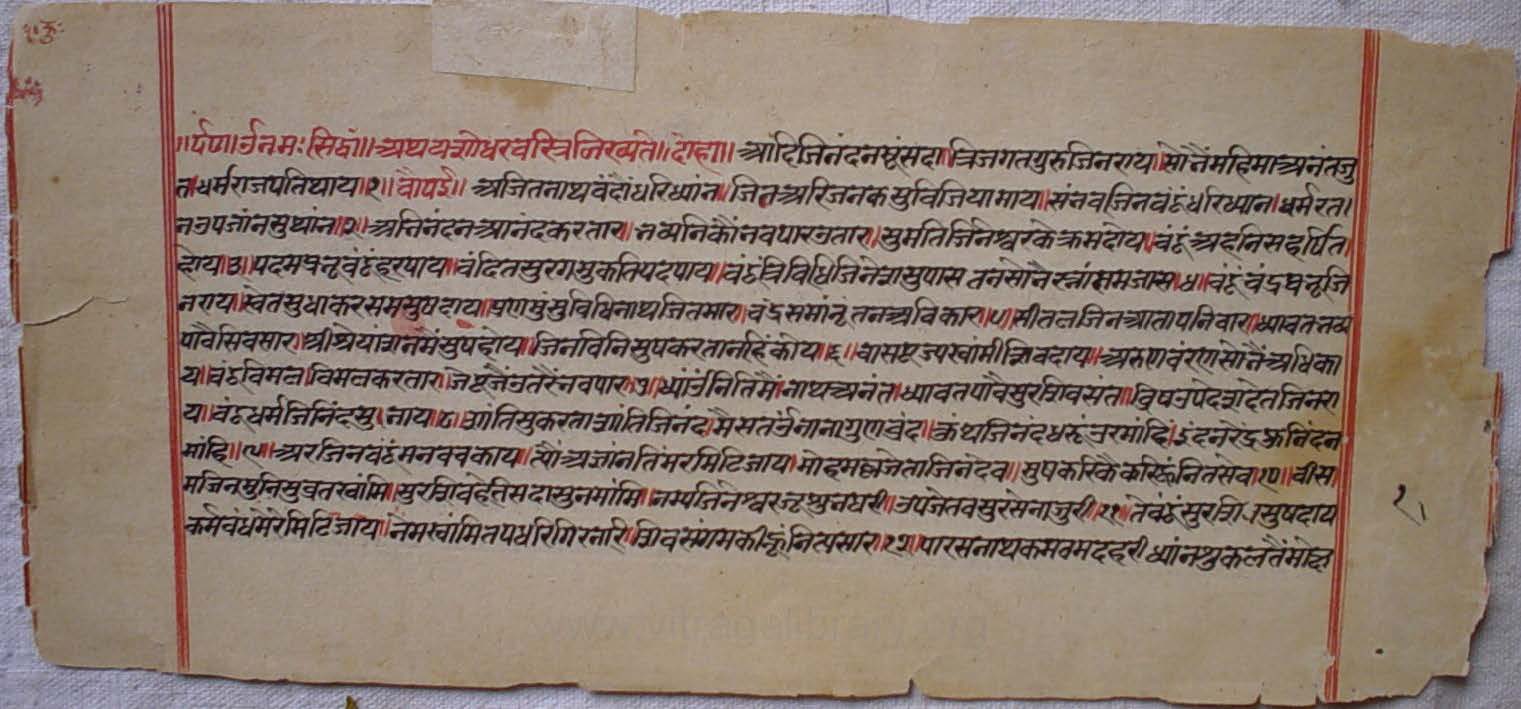 ॥ॐ नमः सिद्धां॥ अथ यशोधरचरित्र लिख्यते॥ दोहा॥ आदिजिनंदनम्रुंसदा।त्रिजगतगुरुजिनराय।सोनैंमहिमाअनंतजु
त।धर्मराजपतिथाय।१॥ चौपई॥ अजितनाथवंदौंधरिध्यांन॥जितअरिजनकसुविजियामाय॥संभवजिनवंदुंधरिध्यान।धर्मरत।
नउपजांनसुथांन।२॥ अभिनंदनआनंदकरतार॥भव्यनिकौंभवपारउतार॥सुमतिजिनेश्वरकेक्रमदोय।वंदुंअहनिसहर्षित।
होय।३॥पदमप्रभुवंदुंहरपाय॥वंदितसुरगमुकतिपदपाय॥वंदुंत्रिविधिजिनेशसुपास तनसोभैरत्नांसमजास।४॥वंदुंचंद्रप्रभुजि
नराय।स्वेतसुधाकरसमसुषदाय॥प्रणमुंसुविधिनाथजितमार॥चंद्रसमांनुतनअविकार।५।सीतलजिनआतापनिवार।ध्यावतभव्य
पावैसिवसार॥श्रीश्रेयांशनमैंसुषहोय॥जिनविनिसुषकरतानहिंकोय।६॥वासपूज्यस्वांमीशिवदाय॥अरुणवंरणसोभैंअधिका
य।वंदुंविमल।विमलकरतार।जेष्टजैंउतरैंभवपार।७।ध्यांऊंनितिमैंनाथअनंत।ध्यावतपावैसुरशिवसंत॥विषउपदेशदेतजिनरा
य।वंदुंधर्मजिनिंदसु।भाय।८।शांतिसुकरताशांतिजिनंद।मैसतऊंनानागुणवृंद।कुंथजिनंदधरुंउरमांहि।इंदनरेंद्रफनिंदन
मांहि॥९॥अरजिनवंदुंमनवचकाय॥त्यौंअज्ञांनतिंमरमिटिजाय।मोहमल्लजेताजिनदेव॥सुषकरिकैकरिहूंनितसेव।१०॥वीस।
मजिनमुनिसुव्रतस्वांमि।सुरशिवहेतिसदासुनमांमि॥नम्पतिनेश्वरजूशुभघरी॥उपजेतवसुरसेनाजुरी।११।तेवंदुंसुरशिवसुषदाय
कर्मबंधमेरेमिटिजाय॥नेमस्वांमितपधरिगिरनारि॥शिवसंगमकीहूंनित्पसार।१२।पारसनाथकमठमदहरी ध्यांनशुकलतैंमोह
१।